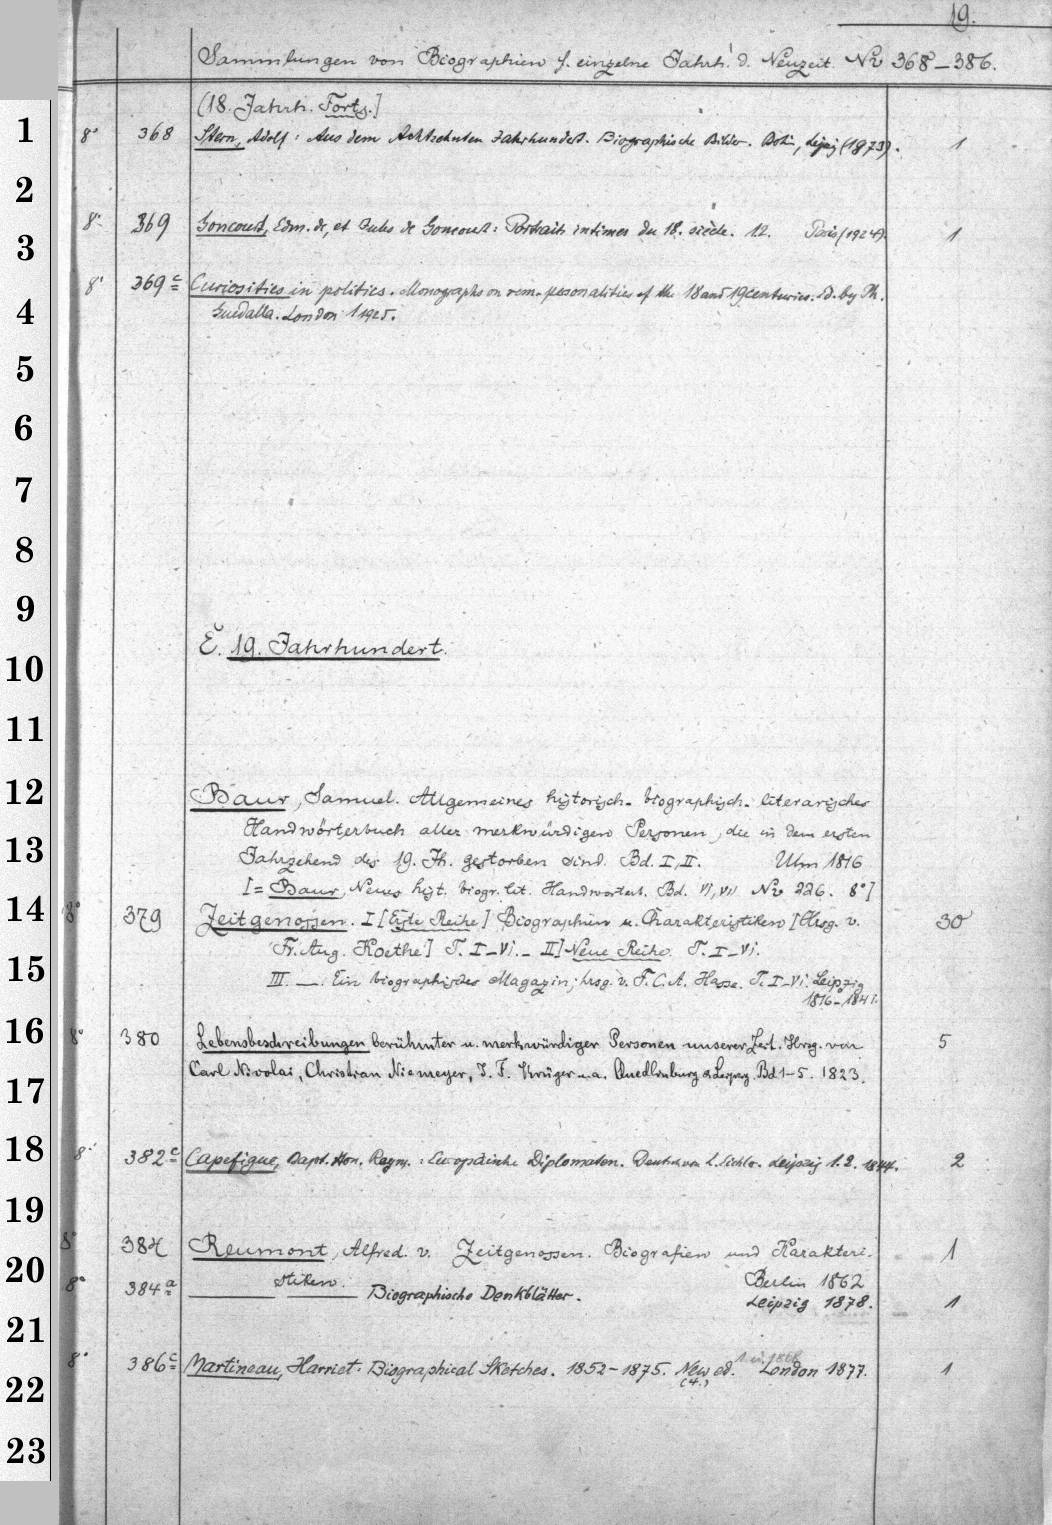 19.
Sammlungen von Biographien f. einzelne Jahrh. d. Neuzeit. Nr 368–386.
(18. Jahrh. Forts.]
1
8° 368 Stern, Adolf: Aus dem Achtzehnten Jahrhundert. Biographische Bilder. Berlin, Leipzig (1873). 1
2
8° 369 Goncourt, Edm. de, et Jules de Goncourt: Portraits intimes du 18. siècle. 1.2. Paris (1924). 1
3
8° 369c Curiosities in politics. Monographs on rem. personalities of the 18 and 19 centuries. Ed. by Ph.
4
Guedalla. London 1 1925.
5
6
7
8
9
E. 19. Jahrhundert.
10
11
12
Baur, Samuel. Allgemeines historisch-biographisch-literarisches
Handwörterbuch aller merkwürdigen Personen, die in dem ersten
13
Jahrzehend des 19. Jh. gestorben sind. Bd. I, II. Ulm 1816
[= Baur, Neues hist. biogr. lit. Handwörterb. Bd. VI, VII Nr 226. 8°]
14
8° 379 Zeitgenossen. I [Erste Reihe] Biographien u. Charakteristiken [Hrsg. v. 30
Fr. Aug. Koethe] T. I–VI. – II] Neue Reihe. T. I–VI.
15
III. —. Ein biographisches Magazin, hrsg. v. F. C. A. Hasse. T. I–VI. Leipzig
1816–1841.
16
8° 380 Lebensbeschreibungen berühmter u. merkwürdiger Personen unserer Zeit. Hrsg. von 5
17
Carl Nicolai, Christian Niemeyer, J. F. Krüger u. a. Quedlinburg & Leipzig. Bd 1–5. 1823.
18
8° 382c Capefigue, Bapt. Hon. Raym.: Europäische Diplomaten. Deutsch von L. Leipzig 1.2. 1844. 2
19
8° 384 Reumont, Alfred v. Zeitgenossen. Biografien und Karakteri- 1
20
stiken. Berlin 1862
8° 384a — — Biographische Denkblätter. Leipzig 1878. 1
21
1 u. 1868
8° 386c Martineau, Harriet: Biographical Sketches. 1852–1875. New ed. London 1877. 1
22
(4.)
23